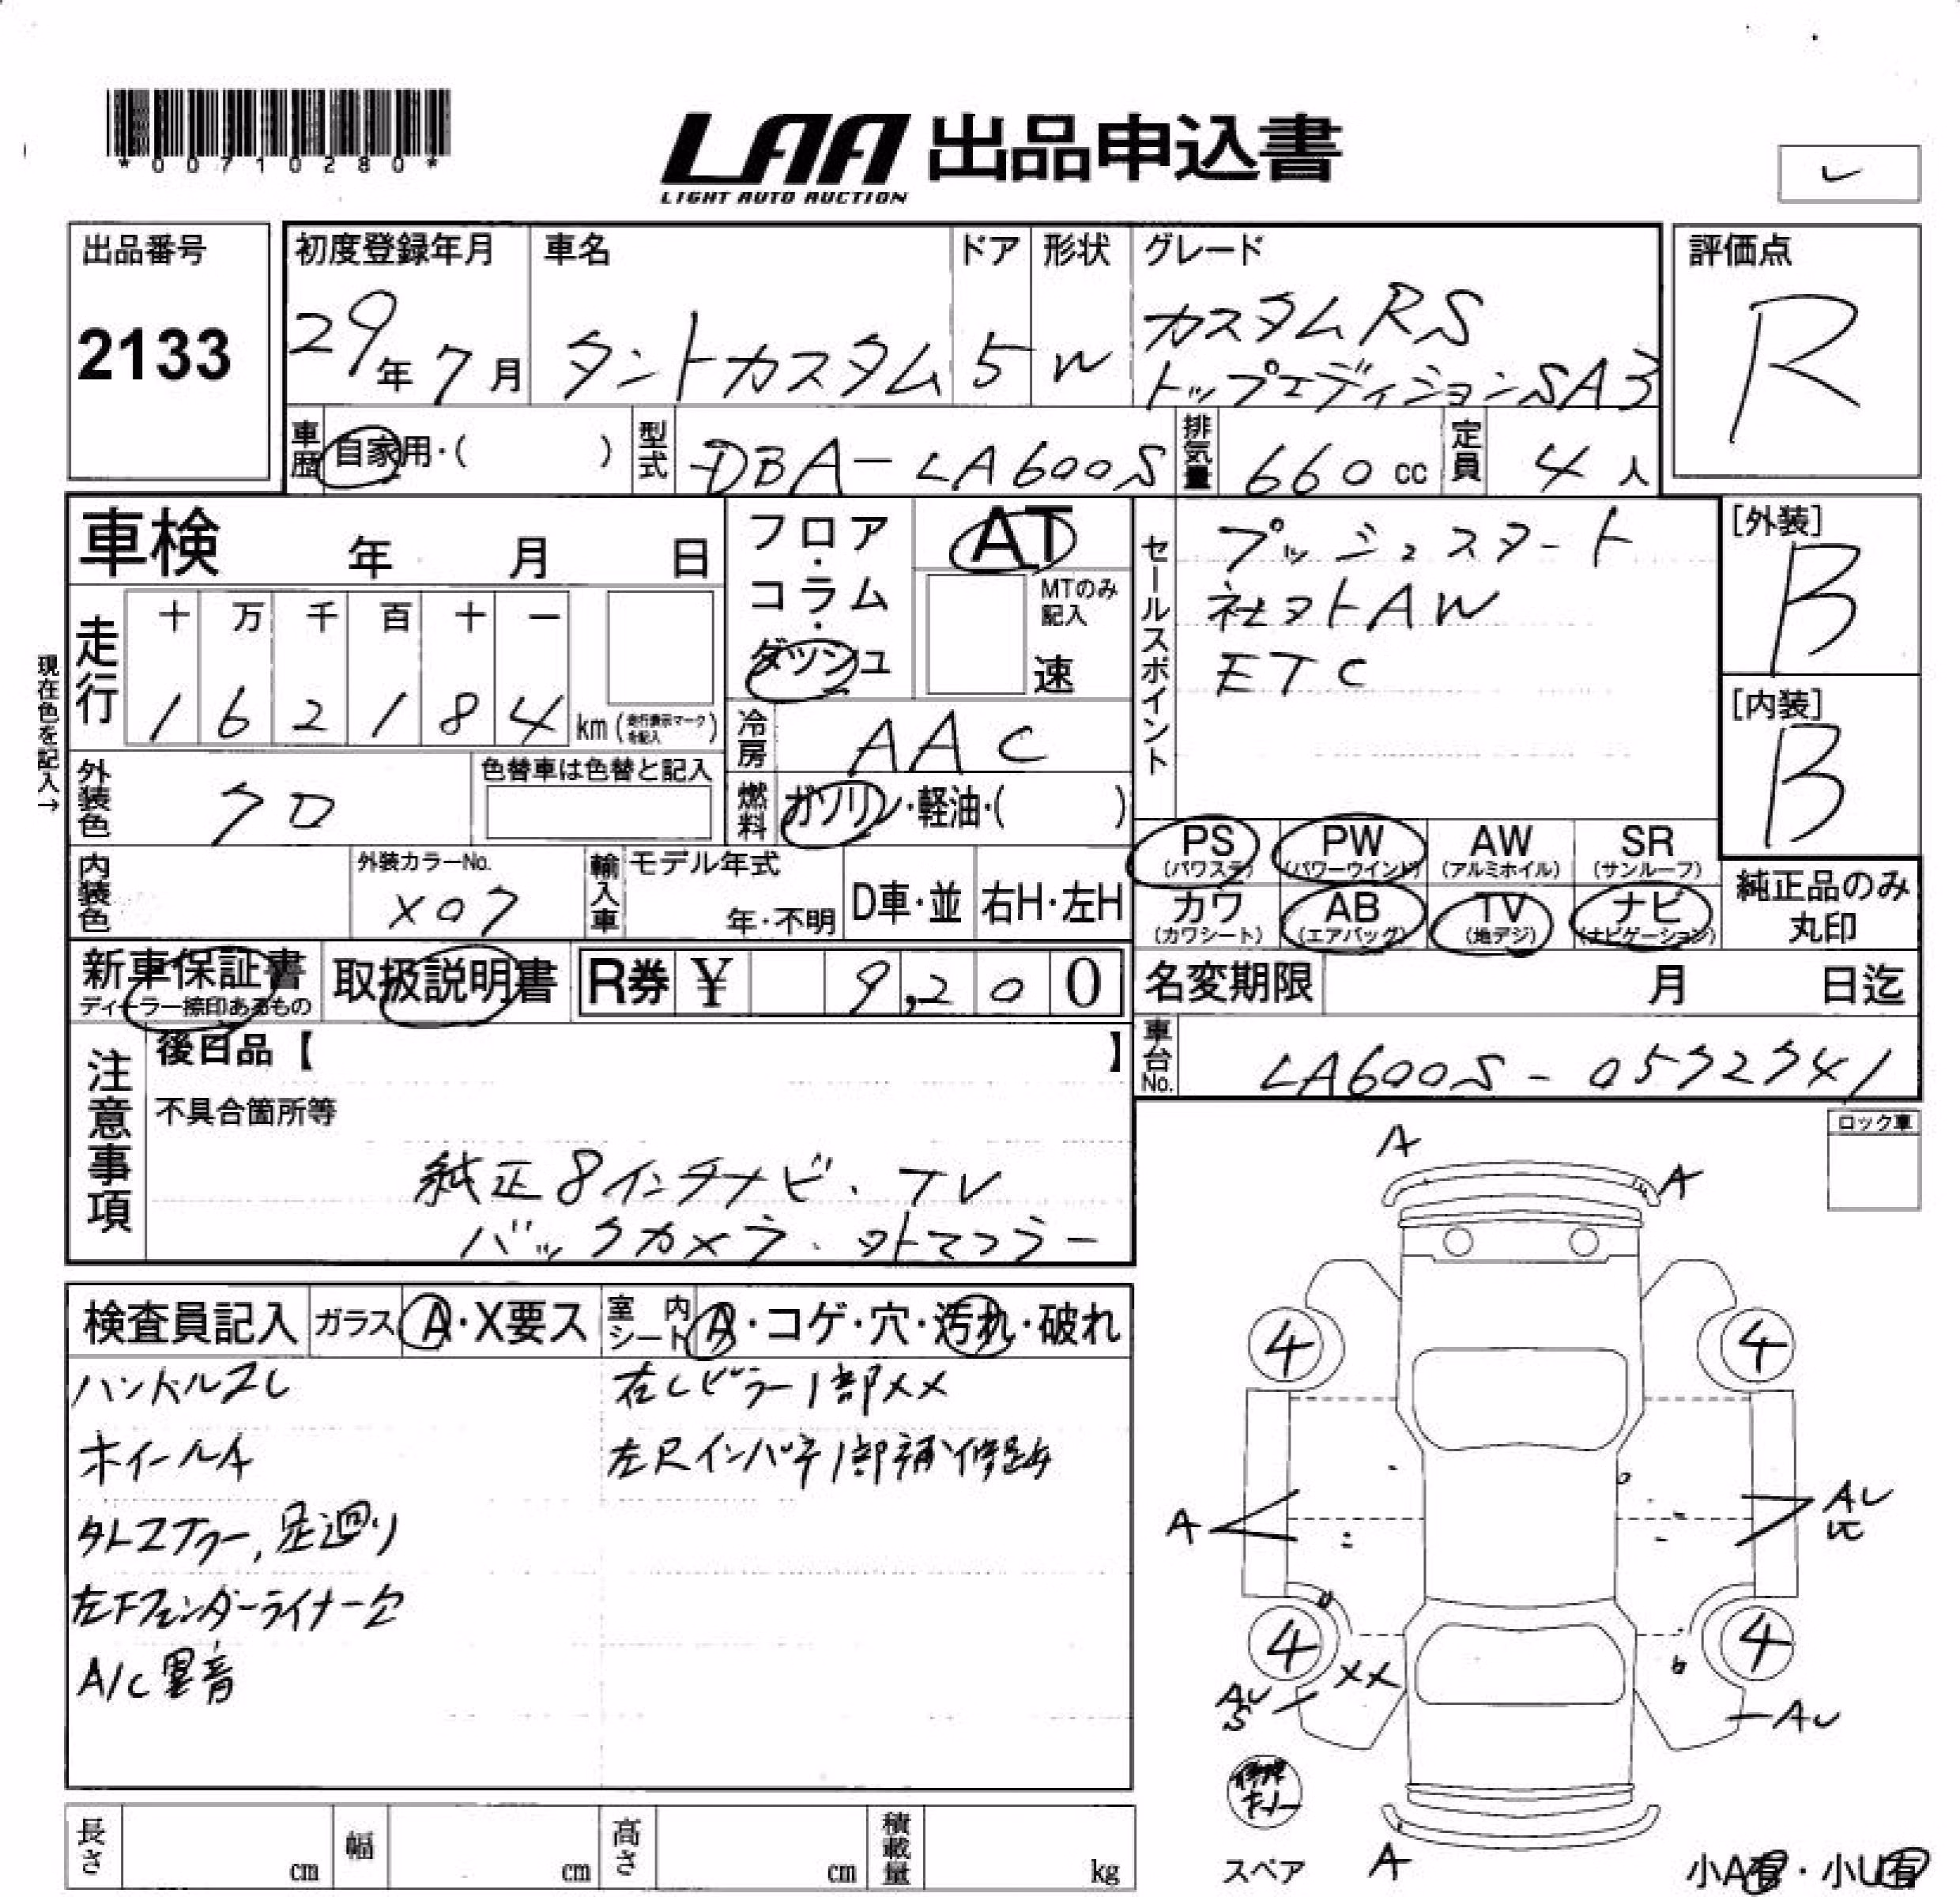 *00710280*
LAA 出品申込書
LIGHT AUTO AUCTION
レ
出品番号
2133
初度登録年月
29年 7月
車名
タントカスタム
ドア
5
形状
W
グレード
カスタムRS
トップエディションSA3
評価点
R
車歴
自家用・( )
型式
DBA-LA600S
排気量
660 cc
定員
4 人
車検 年 月 日
フロア・コラム・ダッシュ
AT
MTのみ記入
速
走行
十 万 千 百 十 一
1 6 2 1 8 4 km (走行表示マークを記入)
現在色を記入→
冷房
AAC
外装色
クロ
色替車は色替と記入
燃料
ガソリン・軽油・( )
セールスポイント
プッシュスタート
社外AW
ETC
[外装]
B
[内装]
B
PS (パワステ)
PW (パワーウインド)
AW (アルミホイル)
SR (サンルーフ)
カワ (カワシート)
AB (エアバッグ)
TV (地デジ)
ナビ (ナビゲーション)
純正品のみ
丸印
内装色
外装カラーNo.
X07
輸入車
モデル年式
年・不明
D車・並
右H・左H
新車保証書
ディーラー捺印あるもの
取扱説明書
R券 ¥ 9,200
名変期限 月 日迄
車台No.
LA600S-0572741
注意事項
後日品【 】
不具合箇所等
純正8インチナビ・TV
バックカメラ・外マフラー
ロック車
検査員記入
ガラス A・X要ス
室内シート A・コゲ・穴・汚れ・破れ
ハンドルスレ
ホイールA
外マフラー, 足廻り
左Fフェンダーライナー欠
A/C異音
右Cピラー1部XX
左Rインパネ1部補修跡
A
A
4
4
A
AU
4
4
XX
AU
S
AU
修理キット
スペア
A
小A有・小U有
長さ cm
幅 cm
高さ cm
積載量 kg